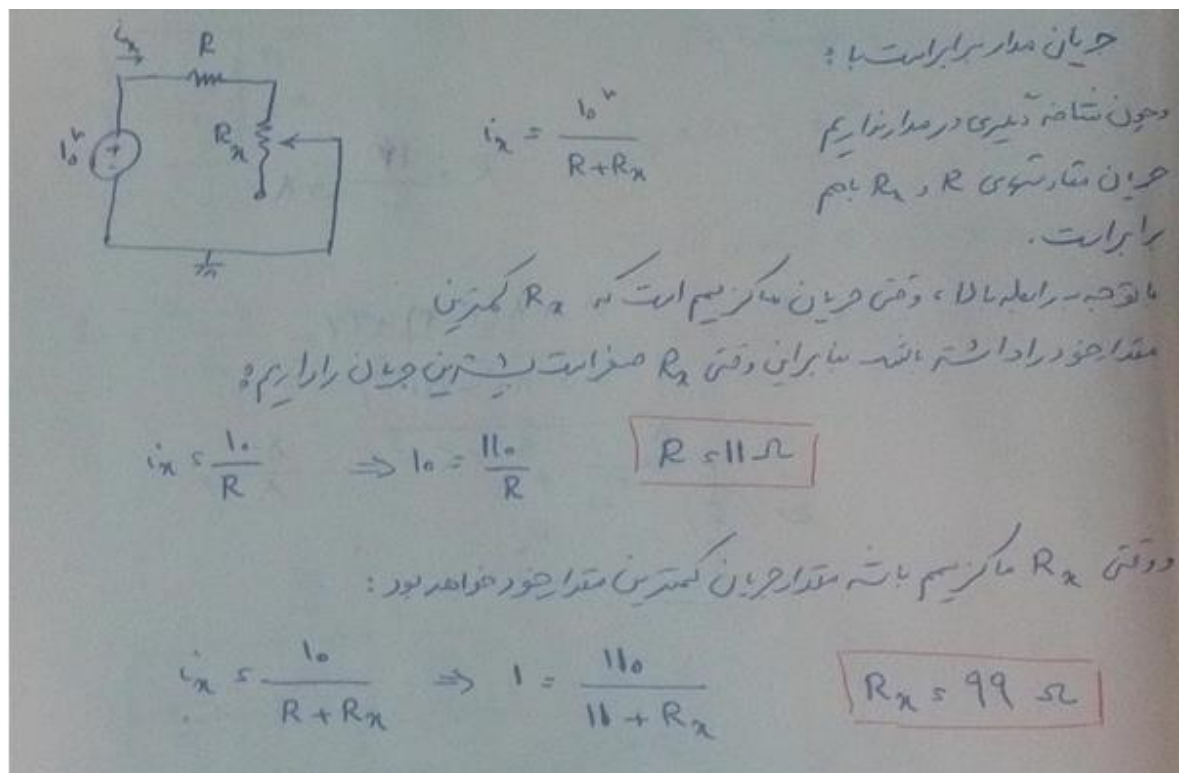 جریان مدار برابر است با :
i_x
R
10^v
R_x
i_x = 10^v / (R+R_x)
و چون شاخه دیگری در مدار نداریم
جریان مقاومتهای R و R_x باهم
برابر است.
با توجه به رابطه بالا ، وقتی جریان ماکزیمم است که R_x کمترین
مقدار خود را داشته باشد بنابراین وقتی R_x صفر است بیشترین جریان را داریم :
i_x = 10 / R ⇒ 10 = 110 / R R = 11 Ω
و وقتی R_x ماکزیمم باشد مقدار جریان کمترین مقدار خود خواهد بود :
i_x = 10 / (R + R_x) ⇒ 1 = 110 / (11 + R_x) R_x = 99 Ω